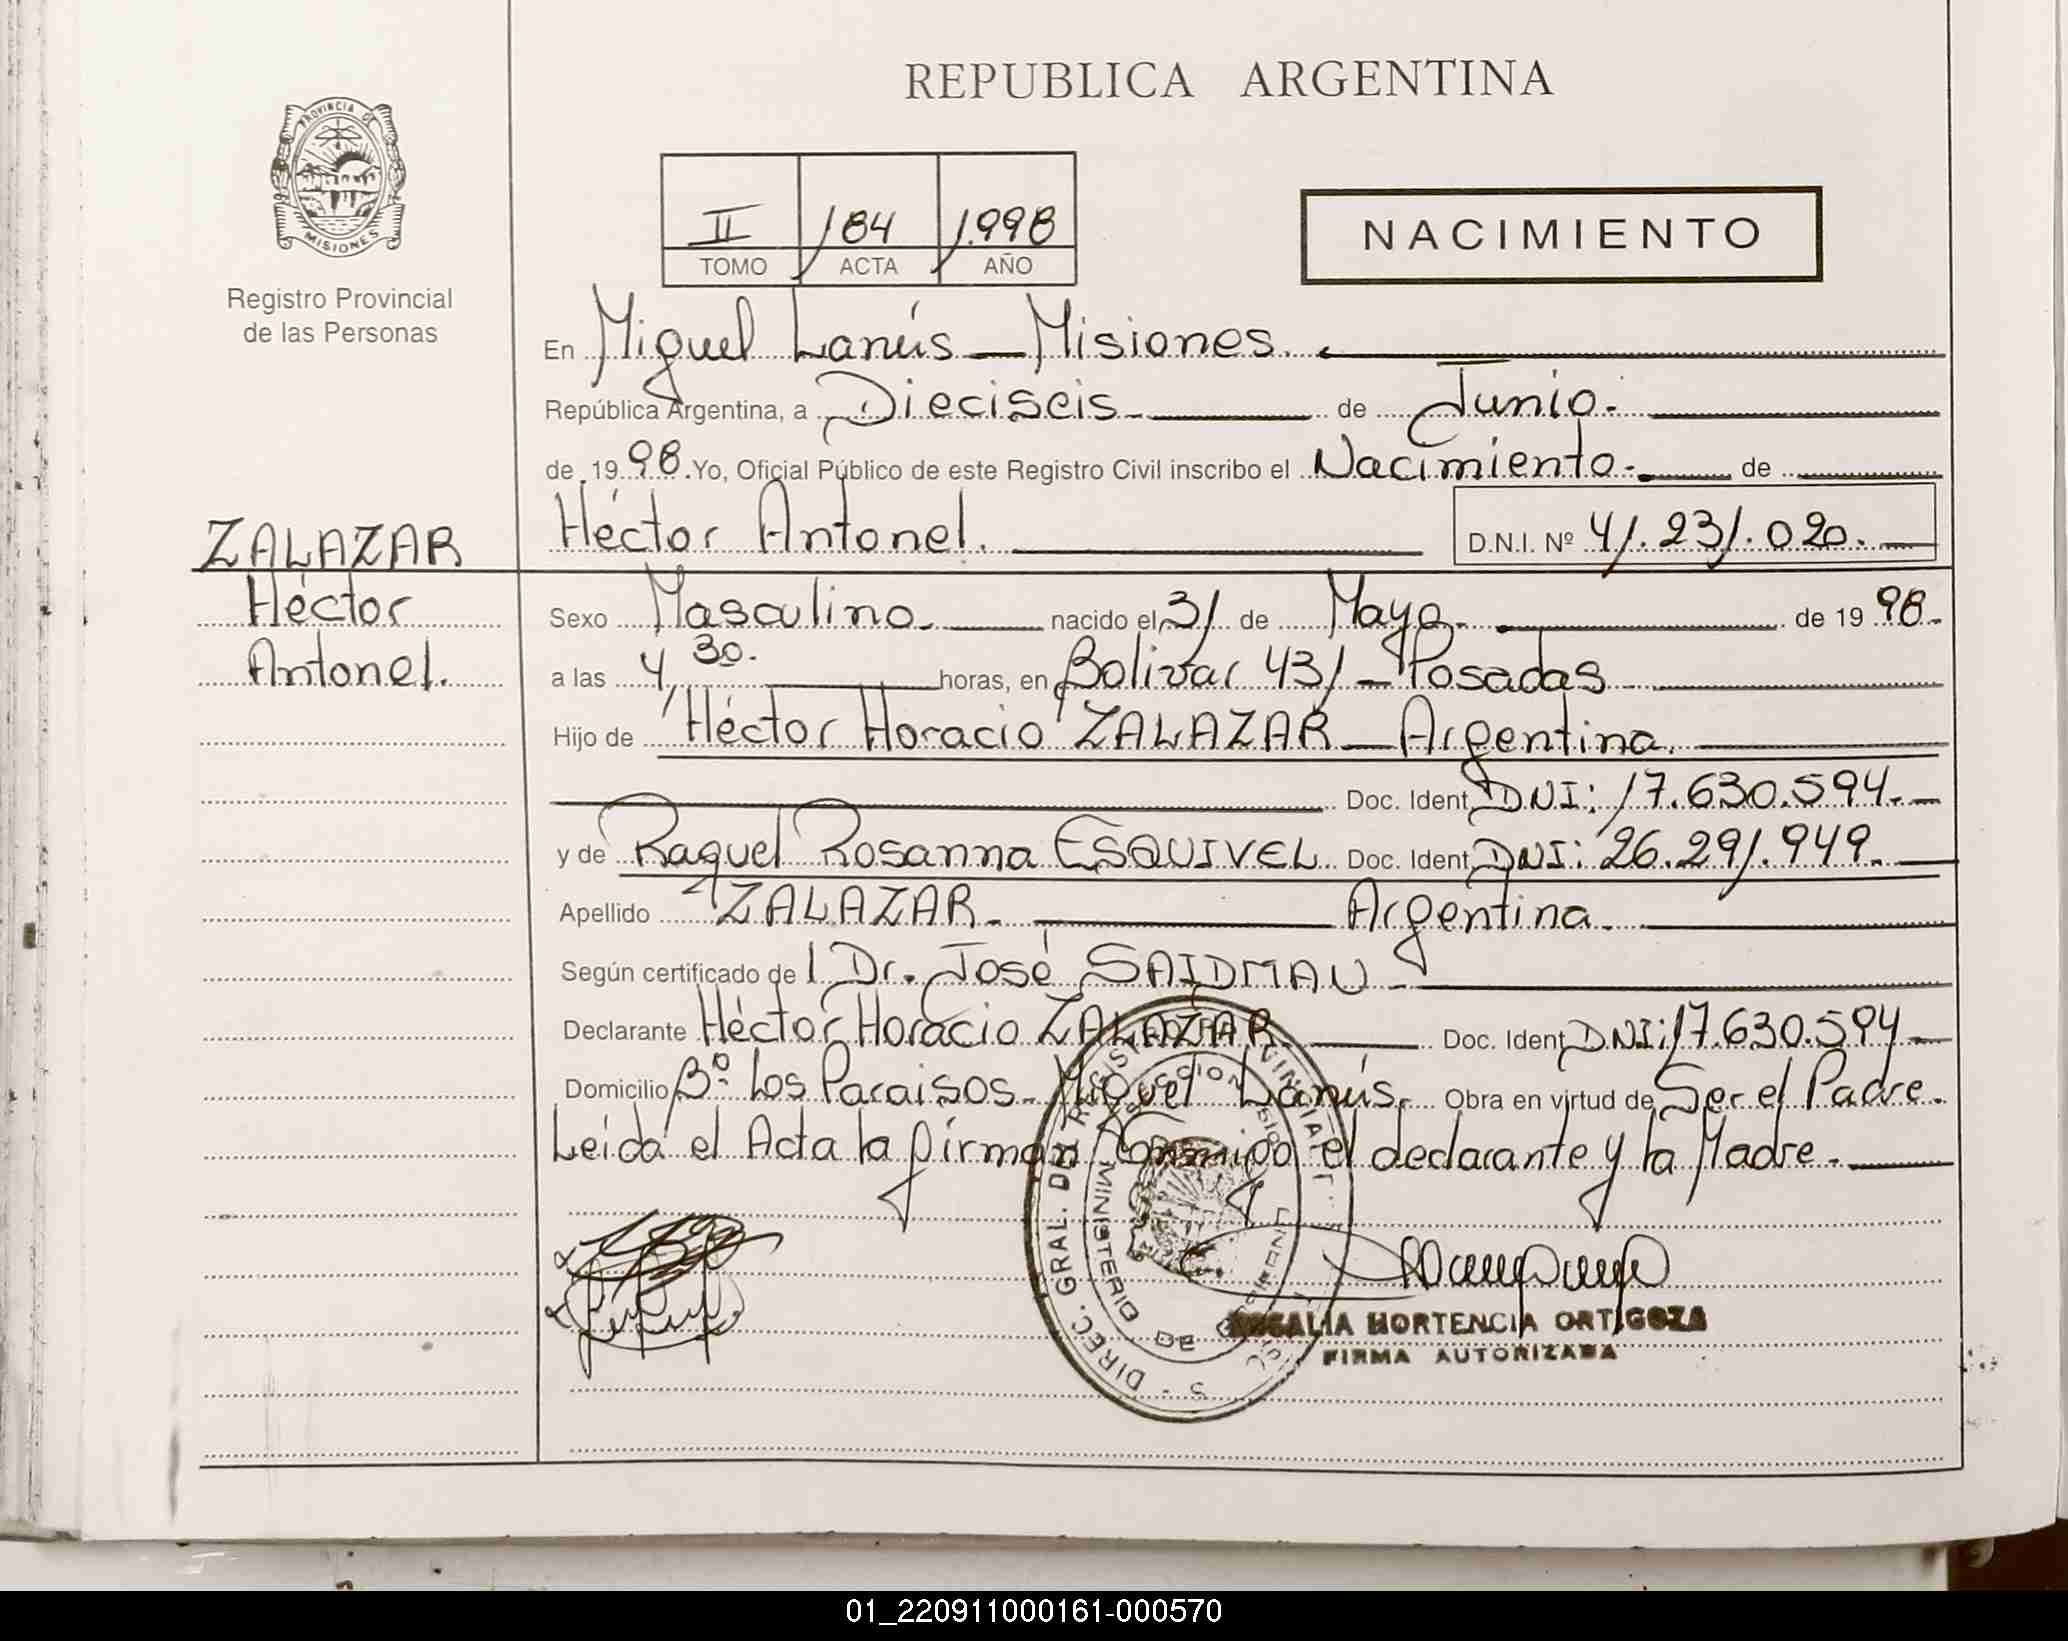 REPUBLICA ARGENTINA
PROVINCIA DE
MISIONES
Registro Provincial
de las Personas
II 184 1.998
TOMO ACTA AÑO
NACIMIENTO
En Miguel Lanús - Misiones.
República Argentina, a Dieciseis de Junio.
de 19 98 Yo, Oficial Público de este Registro Civil inscribo el Nacimiento. de
Héctor Antonel. D.N.I. Nº 41.231.020.
ZALAZAR
Héctor
Antonel.
Sexo Masculino. nacido el 31 de Mayo. de 19 98.
a las 4 30. horas, en Bolivar 431 - Posadas
Hijo de Héctor Horacio ZALAZAR - Argentina.
Doc. Ident. DNI: 17.630.594.
y de Raquel Rosanna ESQUIVEL Doc. Ident. DNI: 26.291.949.
Apellido ZALAZAR. Argentina.
Según certificado de l Dr. José SAIDMAN
Declarante Héctor Horacio ZALAZAR Doc. Ident. DNI: 17.630.594
Domicilio Bº Los Paraisos - Miguel Lanús. Obra en virtud de Ser el Padre.
Leida el Acta la firman Conmigo el declarante y la Madre.
DIREC. GRAL. DEL REGISTRO PROVINCIAL
MINISTERIO DE
HORTENCIA ORTIGOZA
FIRMA AUTORIZADA
01_220911000161-000570